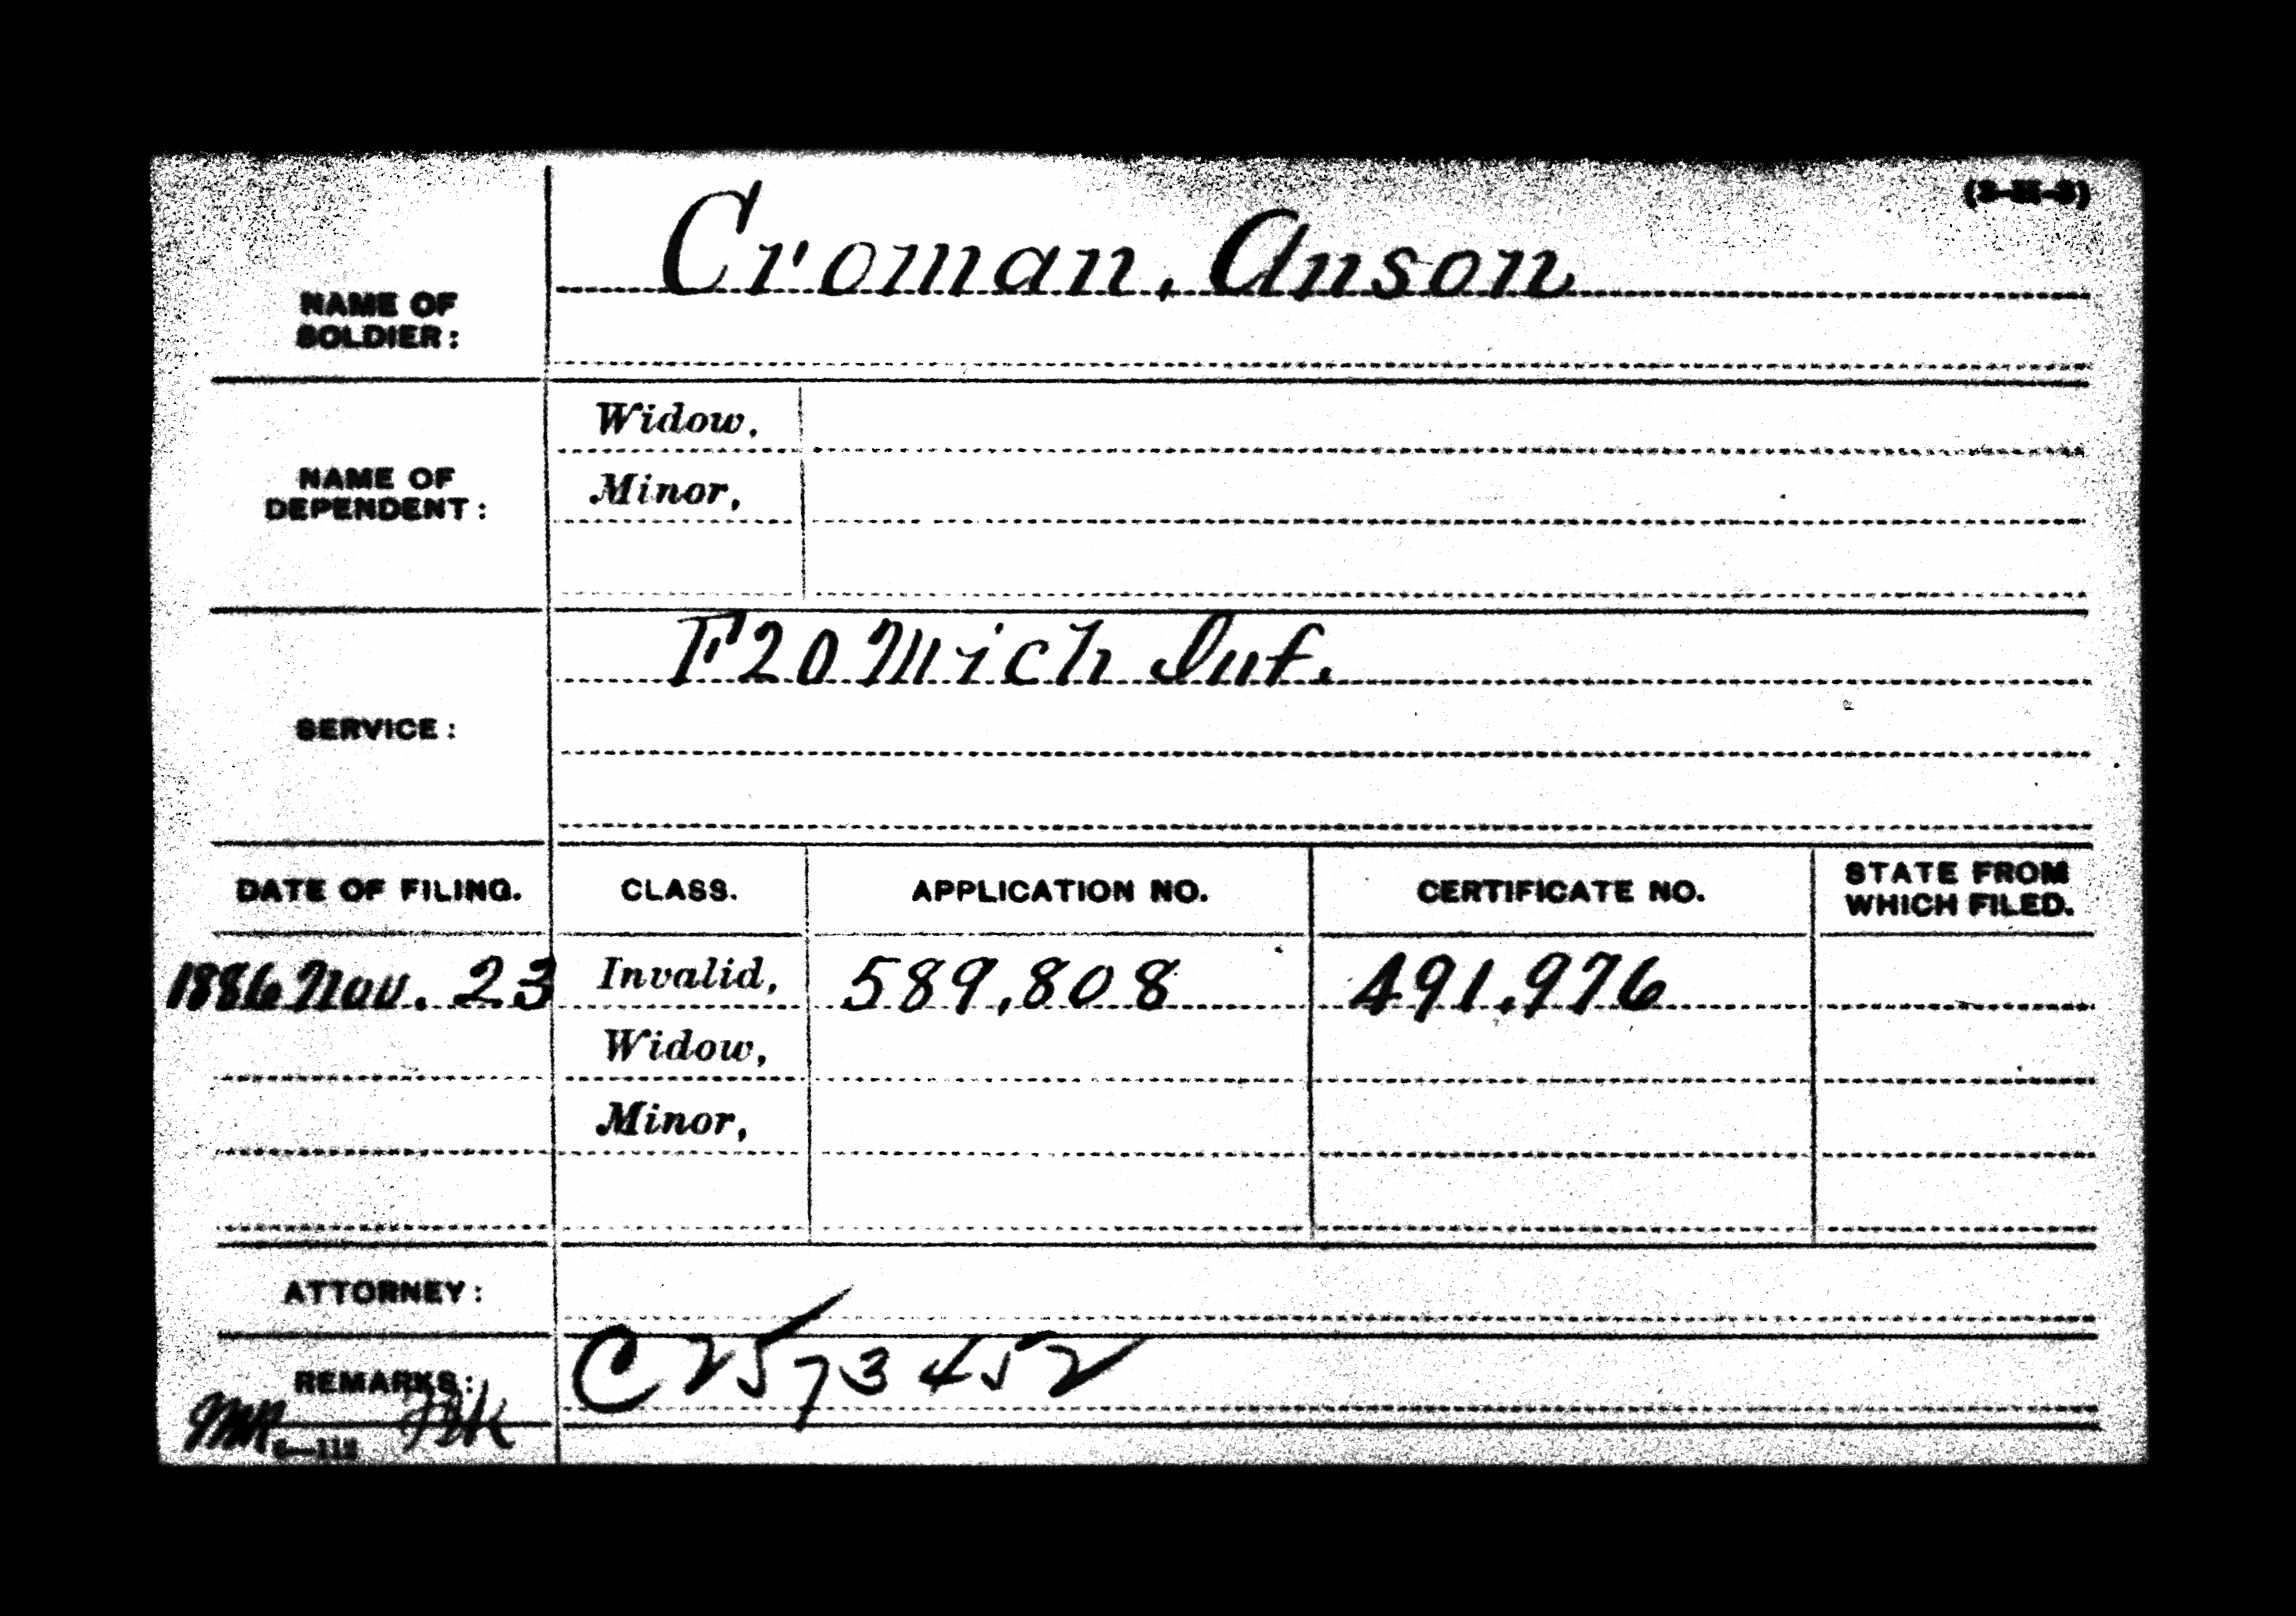 Croman, Anson
NAME OF
SOLDIER:
Widow,
NAME OF
DEPENDENT:
Minor,
F 20 Mich Inf.
SERVICE:
DATE OF FILING. CLASS. APPLICATION NO. CERTIFICATE NO. STATE FROM WHICH FILED.
1886 Nov. 23 Invalid, 589,808 491,976
Widow,
Minor,
ATTORNEY:
REMARKS: C 2573452